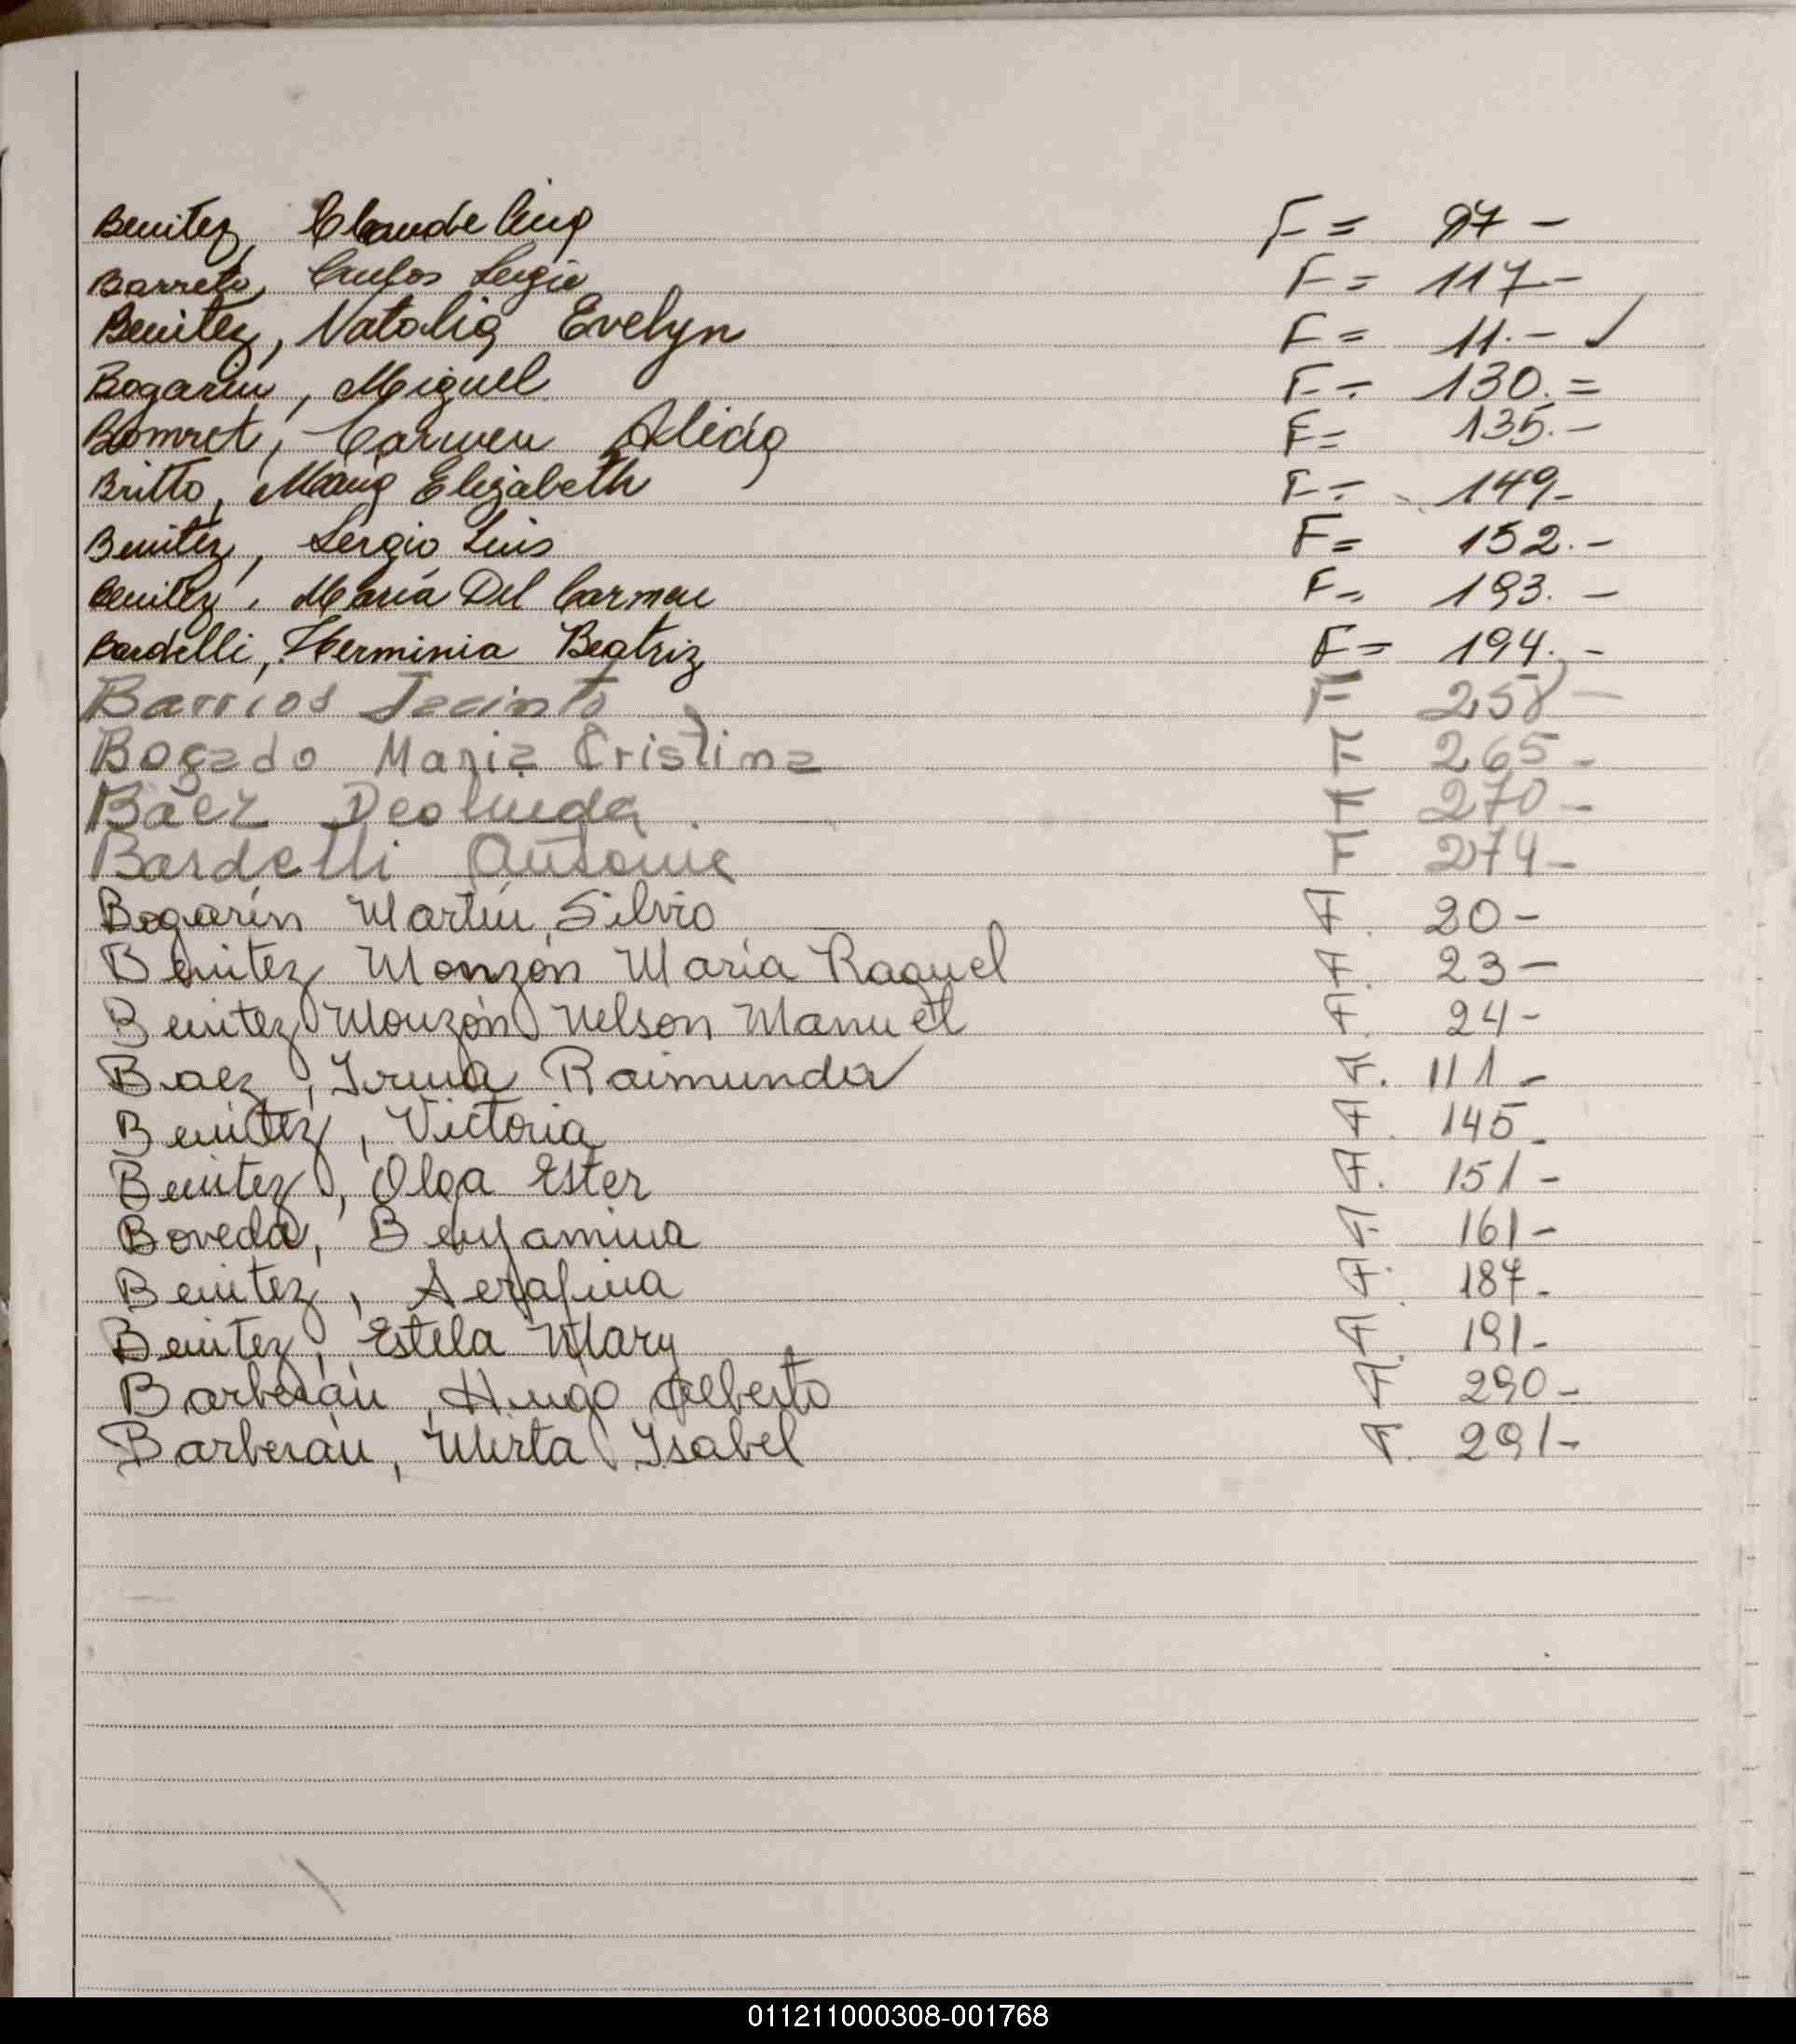 Benitez, Claudelina F = 97 -
Barreto, Carlos Sergio F = 117 -
Benitez, Natalia Evelyn F = 11. - ✓
Bogarin, Miguel F - 130. =
Carmen Alida F = 135. -
Britto, Maria Elizabeth F = 149 -
Benitez, Sergio Luis F = 152. -
Benitez, María Del Carmen F = 193. -
Bardelli, Herminia Beatriz F = 194. -
Barrios Jacinto F 258 -
Bogado Maria Cristina F 265 -
Báez Deolinda F 270 -
Bardelli Antonia F 274 -
Bogarín Martín, Silvio F. 20 -
Benitez Monzón María Raquel F. 23 -
Benitez Monzón Nelson Manuel F. 24 -
Baez, Irma Raimunda F. 111 -
Benitez, Victoria F. 145 -
Benitez, Olga Ester F. 151 -
Boveda, Benjamina F. 161 -
Benitez, Serafina F. 187 -
Benitez, Estela Mary F. 191 -
Barberán, Hugo Alberto F. 290 -
Barberán, Mirta Isabel F. 291 -
011211000308-001768